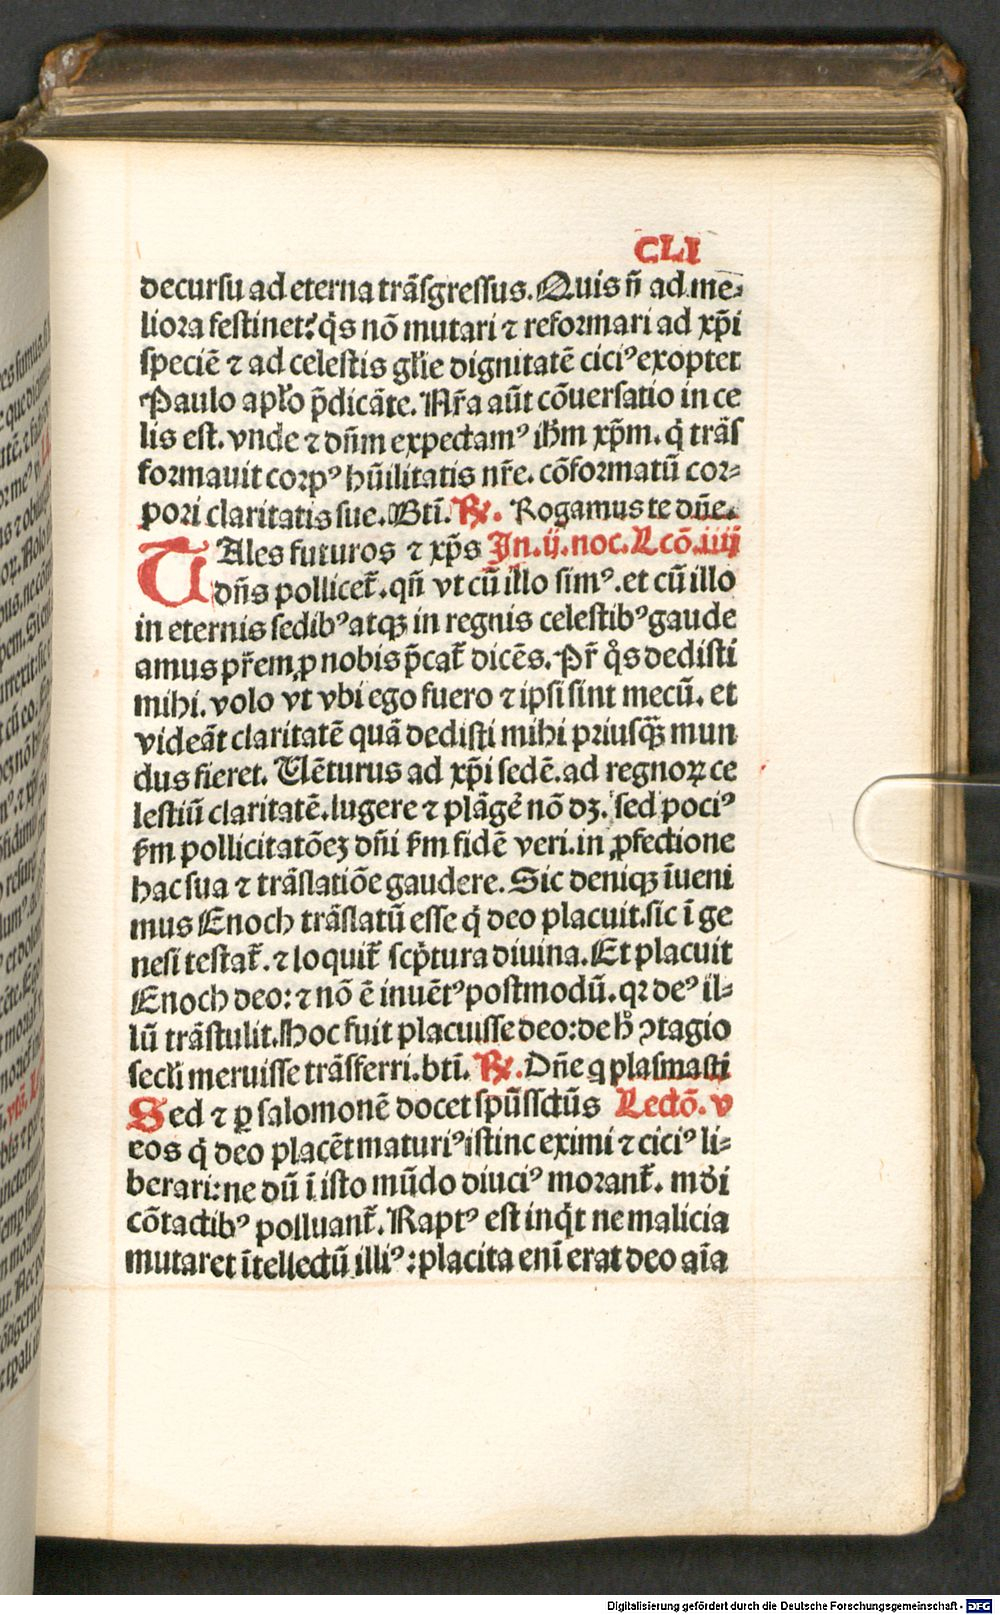 CLI
decursu ad eterna trãsgressus. Quis ñ ad me-
liora festinet? q̃s nõ mutari ⁊ reformari ad xp̃i
speciẽ ⁊ ad celestis gl̃ie dignitatẽ ciciꝰ exoptet
Paulo apl̃o p̃dicãte. Nr̃a aũt cõuersatio in ce
lis est. vnde ⁊ dñm expectamꝰ ihm̃ xp̃m. q̇ trãs
formauit corpꝰ hũilitatis nr̃e. cõformatũ cor-
pori claritatis sue. Btĩ. ℟. Rogamus te dñe.
TAles futuros ⁊ xp̃s In. ij. noc. Lcõ. iiij
dñs pollicet̃. qñ vt cũ illo simꝰ. et cũ illo
in eternis sedibꝰ atqꝫ in regnis celestibꝰ gaude
amus pr̃em ꝓ nobis p̃cat̃ dicẽs. Pr̃ q̊s dedisti
mihi. volo vt vbi ego fuero ⁊ ipsi sint mecũ. et
videãt claritatẽ quã dedisti mihi priusqꝫ̃ mun
dus fieret. Uẽturus ad xp̃i sedẽ. ad regnoꝝ ce
lestiũ claritatẽ. lugere ⁊ plãgẽ nõ dꝫ. sed pociꝰ
s̃m pollicitatõeꝫ dñi s̃m fidẽ veri. in ꝓfectione
hac sua ⁊ trãslatiõe gaudere. Sic deniqꝫ ĩueni
mus Enoch trãslatũ esse q̇ deo placuit. sic ĩ ge
nesi testat̃. ⁊ loquit̃ scp̃tura diuina. Et placuit
Enoch deo: ⁊ nõ ẽ inuẽtꝰ postmodũ. qꝛ deꝰ il-
lũ trãstulit. Hoc fuit placuisse deo: de h̊ ꝯtagio
secl̃i meruisse trãsferri. btĩ. ℟. Dñe q plasmasti
Sed ⁊ ꝑ salomonẽ docet spũssctũs Lectõ. v
eos q̇ deo placẽt maturiꝰ istinc eximi ⁊ ciciꝰ li-
berari: ne dũ ĩ isto mũdo diuciꝰ morant̃. mũdi
cõtactibꝰ polluant̃. Raptꝰ est inq̇t ne malicia
mutaret ĩtellectũ illiꝰ: placita enĩ erat deo aĩa
Digitalisierung gefördert durch die Deutsche Forschungsgemeinschaft - DFG